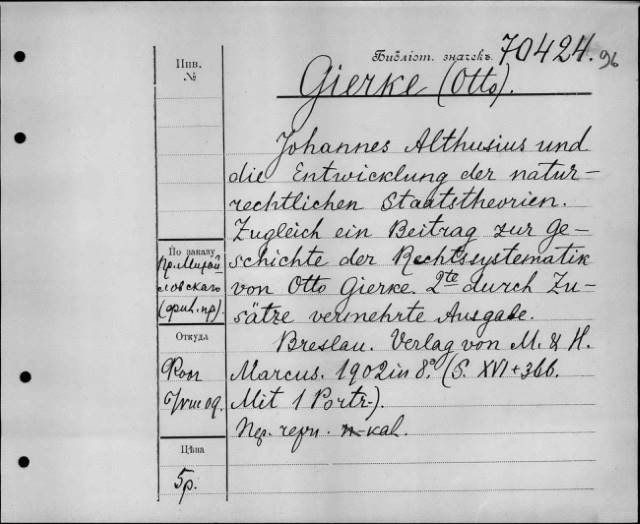 Инв.
№
Библіот. значекъ. 70424.
96
Gierke (Otto).
Johannes Althusius und
die Entwicklung der natur-
rechtlichen Staatstheorien.
Zugleich ein Beitrag zur Ge-
schichte der Rechtssystematik
von Otto Gierke. 2te durch Zu-
sätze vermehrte Ausgabe.
Breslau. Verlag von M. & H.
Marcus. 1902 in 8°. (S. XVI + 366.
Mit 1 Portr.).
По заказу
Пр. Михай
ловскаго
Откуда
Цѣна
5 р.